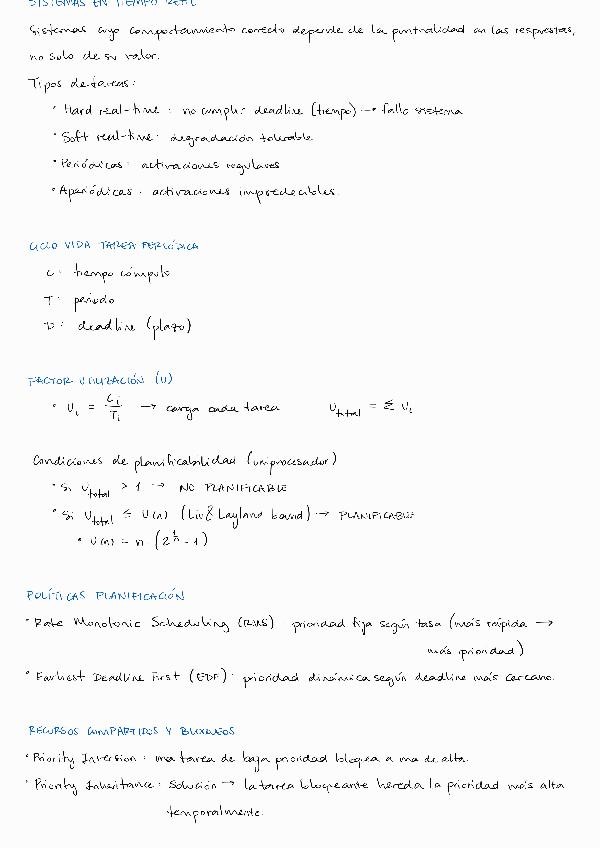 SISTEMAS EN TIEMPO REAL
Sistemas cuyo comportamiento correcto depende de la puntualidad en las respuestas,
no solo de su valor.
Tipos de tareas:
• Hard real-time : no cumplir deadline (tiempo) → fallo sistema
• Soft real-time : degradación tolerable
• Periódicas : activaciones regulares
• Aperiódicas : activaciones impredecibles.
CICLO VIDA TAREA PERIÓDICA
C: tiempo cómputo
T: periodo
D: deadline (plazo)
FACTOR UTILIZACIÓN (U)
• Uᵢ = Cᵢ/Tᵢ → carga cada tarea U_total = Σ Uᵢ
Condiciones de planificabilidad (uniprocesador)
• Si U_total > 1 → NO PLANIFICABLE
• Si U_total ≤ U(n) (Liu & Layland bound) → PLANIFICABLE
• U(n) = n (2^(1/n) - 1)
POLÍTICAS PLANIFICACIÓN
• Rate Monotonic Scheduling (RMS) prioridad fija según tasa (más rápida →
más prioridad)
• Earliest Deadline First (EDF): prioridad dinámica según deadline más cercano.
RECURSOS COMPARTIDOS Y BLOQUEOS
• Priority Inversion : una tarea de baja prioridad bloquea a una de alta.
• Priority Inheritance : Solución → la tarea bloqueante hereda la prioridad más alta
temporalmente.